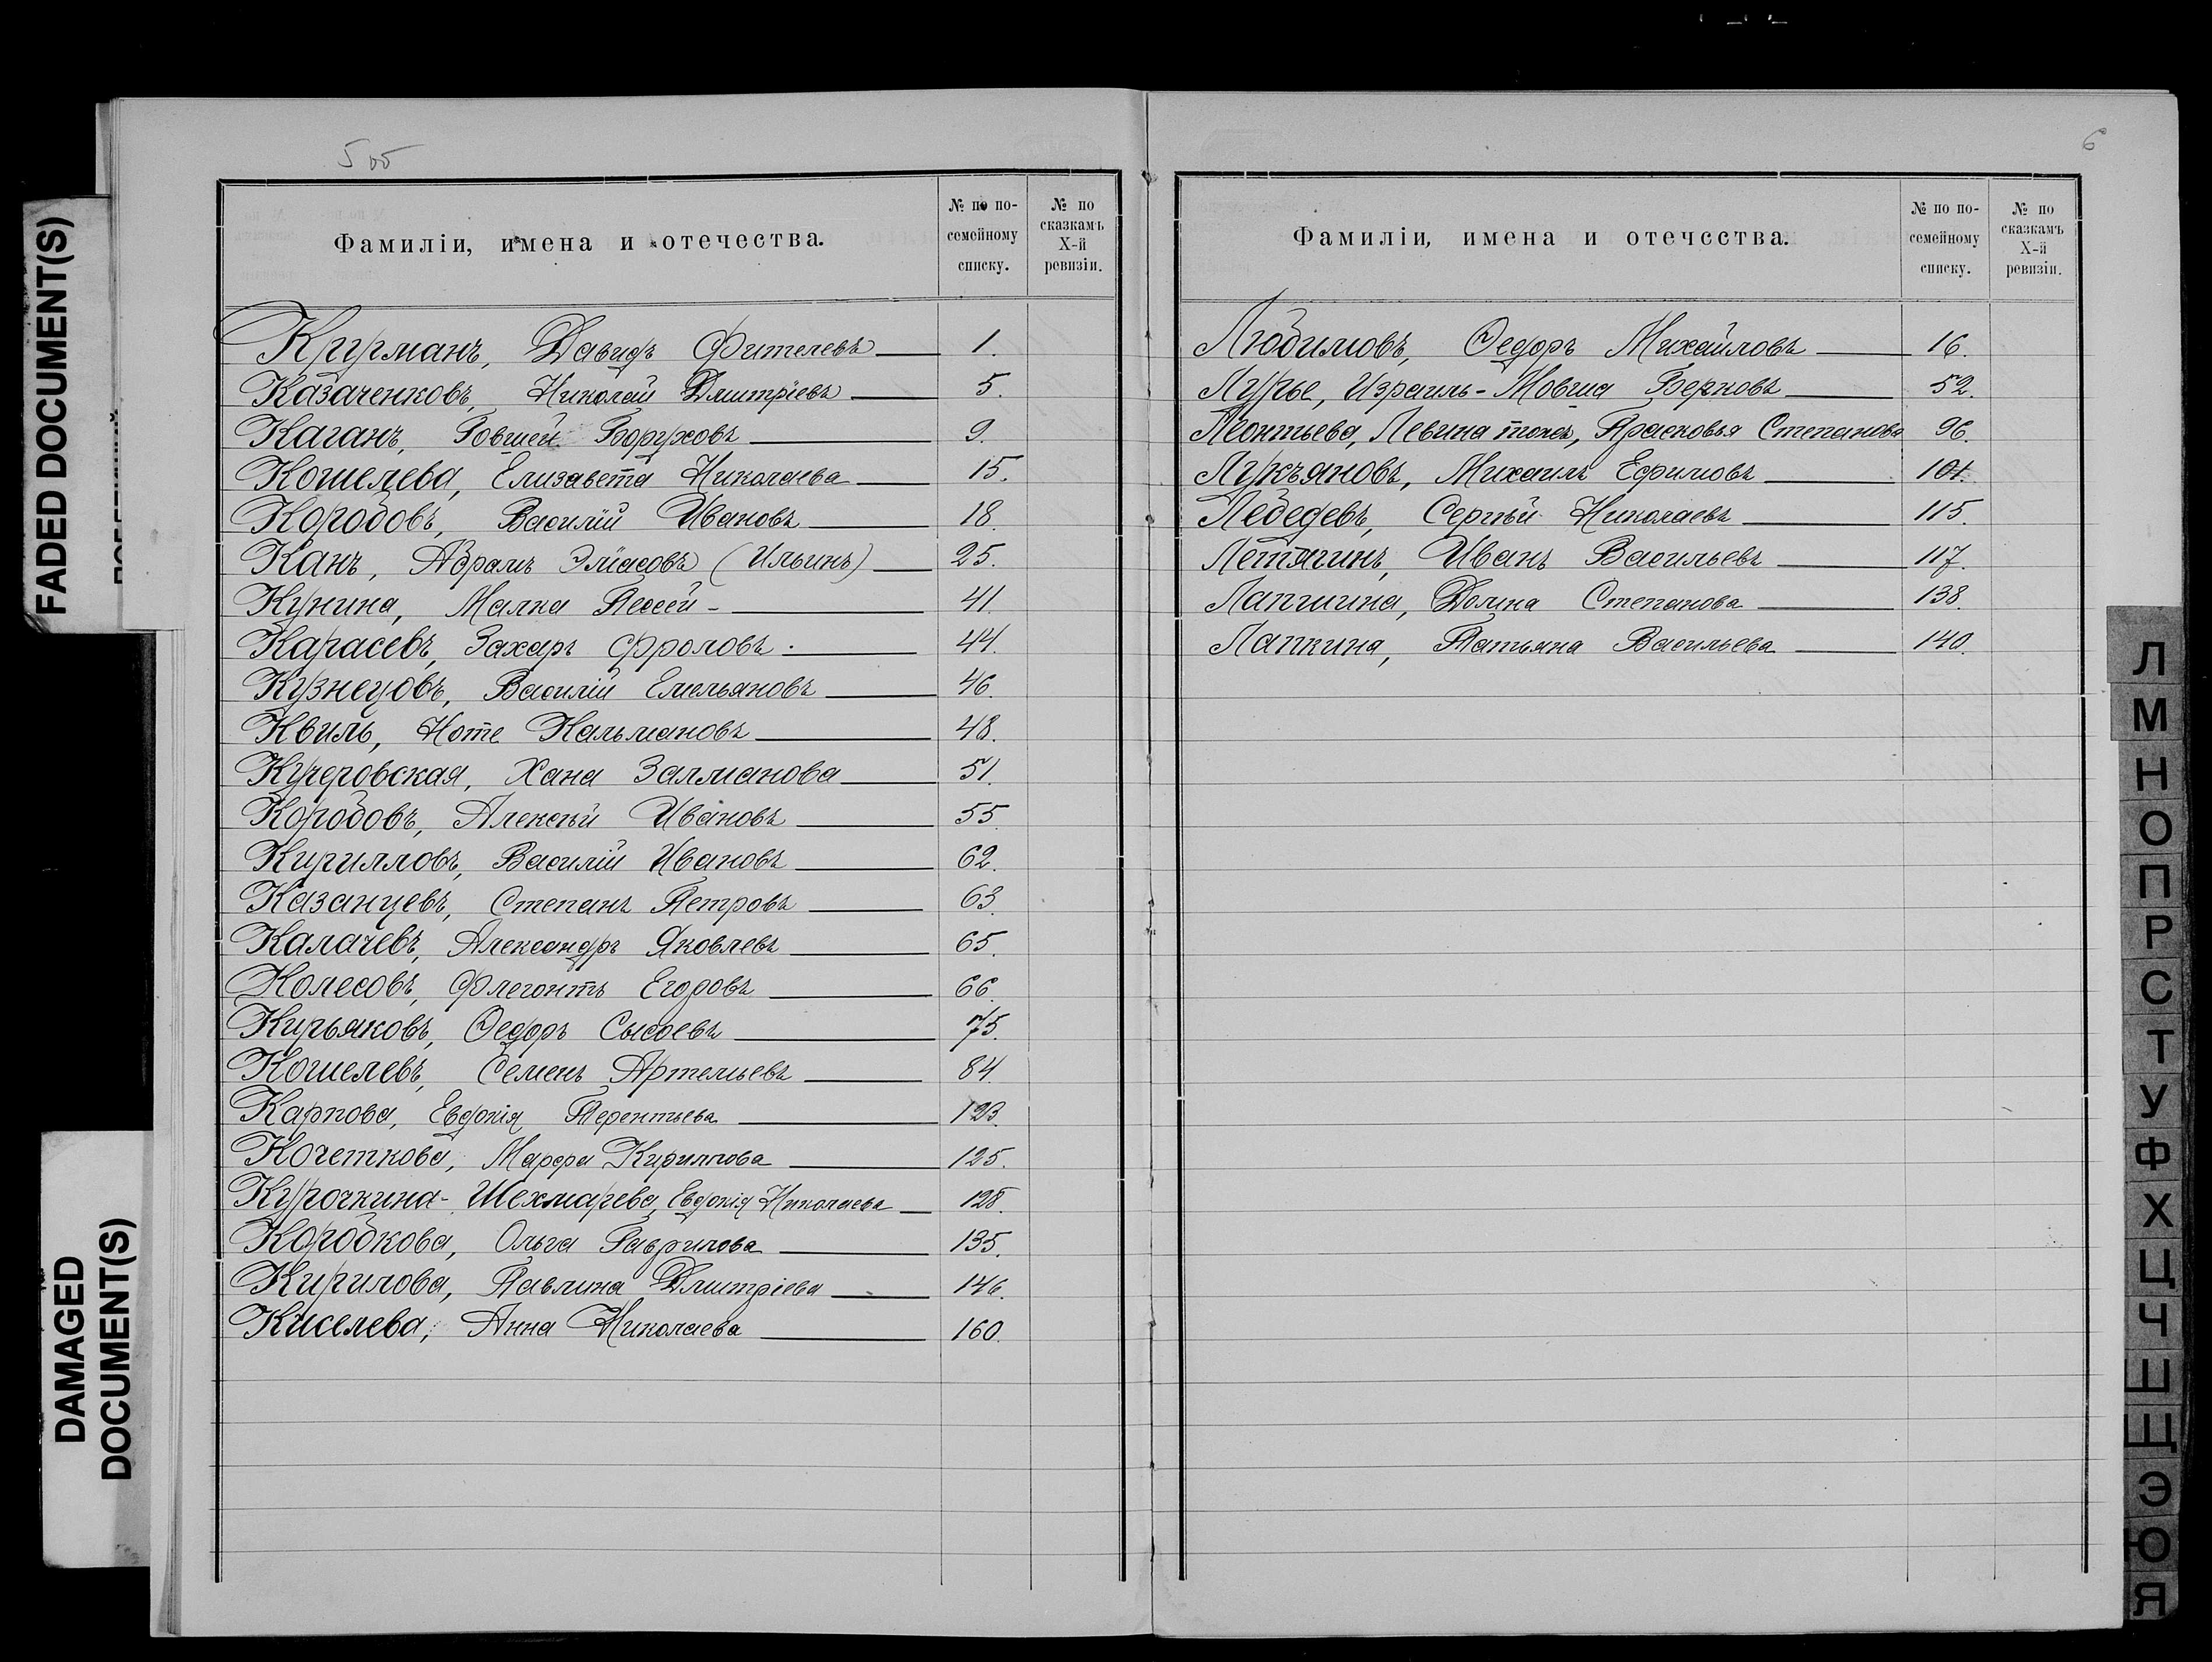 FADED DOCUMENT(S)
DAMAGED
DOCUMENT(S)
5 об
Фамиліи, имена и отечества.
№ по по-
семейному
списку.
№ по
сказкамъ
X-й
ревизіи.
Кругманъ, Давидъ Фителевъ 1.
Казаченковъ, Николай Дмитріевъ 5.
Каганъ, Говшей Боруховъ 9.
Кошелева, Елизавета Николаева 15.
Коробовъ, Василій Ивановъ 18.
Канъ, Абрамъ Эліасовъ (Ильинъ) 25.
Кунина, Малка Пессей- 41.
Карасевъ, Захаръ Фроловъ. 44.
Кузнецовъ, Василій Емельяновъ 46.
Квиль, Ноте Кальмановъ 48.
Кучеровская, Хана Залманова 51.
Коробовъ, Алексѣй Ивановъ 55.
Кирилловъ, Василій Ивановъ 62.
Казанцевъ, Степанъ Петровъ 63.
Калачевъ, Александръ Яковлевъ 65.
Колесовъ, Флегонтъ Егоровъ 66.
Кирьяковъ, Ѳедоръ Сысоевъ 75.
Кошелевъ, Семенъ Артемьевъ 84.
Карпова, Евдокія Терентьева 123.
Кочеткова, Марфа Кириллова 125.
Курочкина-Шехмарева, Евдокія Николаева 128.
Коробкова, Ольга Гаврилова 135.
Кирилова, Павлина Дмитріева 146.
Киселева, Анна Николаева 160.
6
Фамиліи, имена и отечества.
№ по по-
семейному
списку.
№ по
сказкамъ
X-й
ревизіи.
Любимовъ, Ѳедоръ Михайловъ 16.
Лурье, Израиль-Мовша Берковъ 52.
Леонтьева, Левина тожъ, Прасковья Степанова 96.
Лукъяновъ, Михаилъ Ефимовъ 101.
Лебедевъ, Сергѣй Николаевъ 115.
Летягинъ, Иванъ Васильевъ 117.
Лапшина, Домна Степанова 138.
Лапкина, Татьяна Васильева 140.
Л
М
Н
О
П
Р
С
Т
У
Ф
Х
Ц
Ч
Ш
Щ
Э
Ю
Я